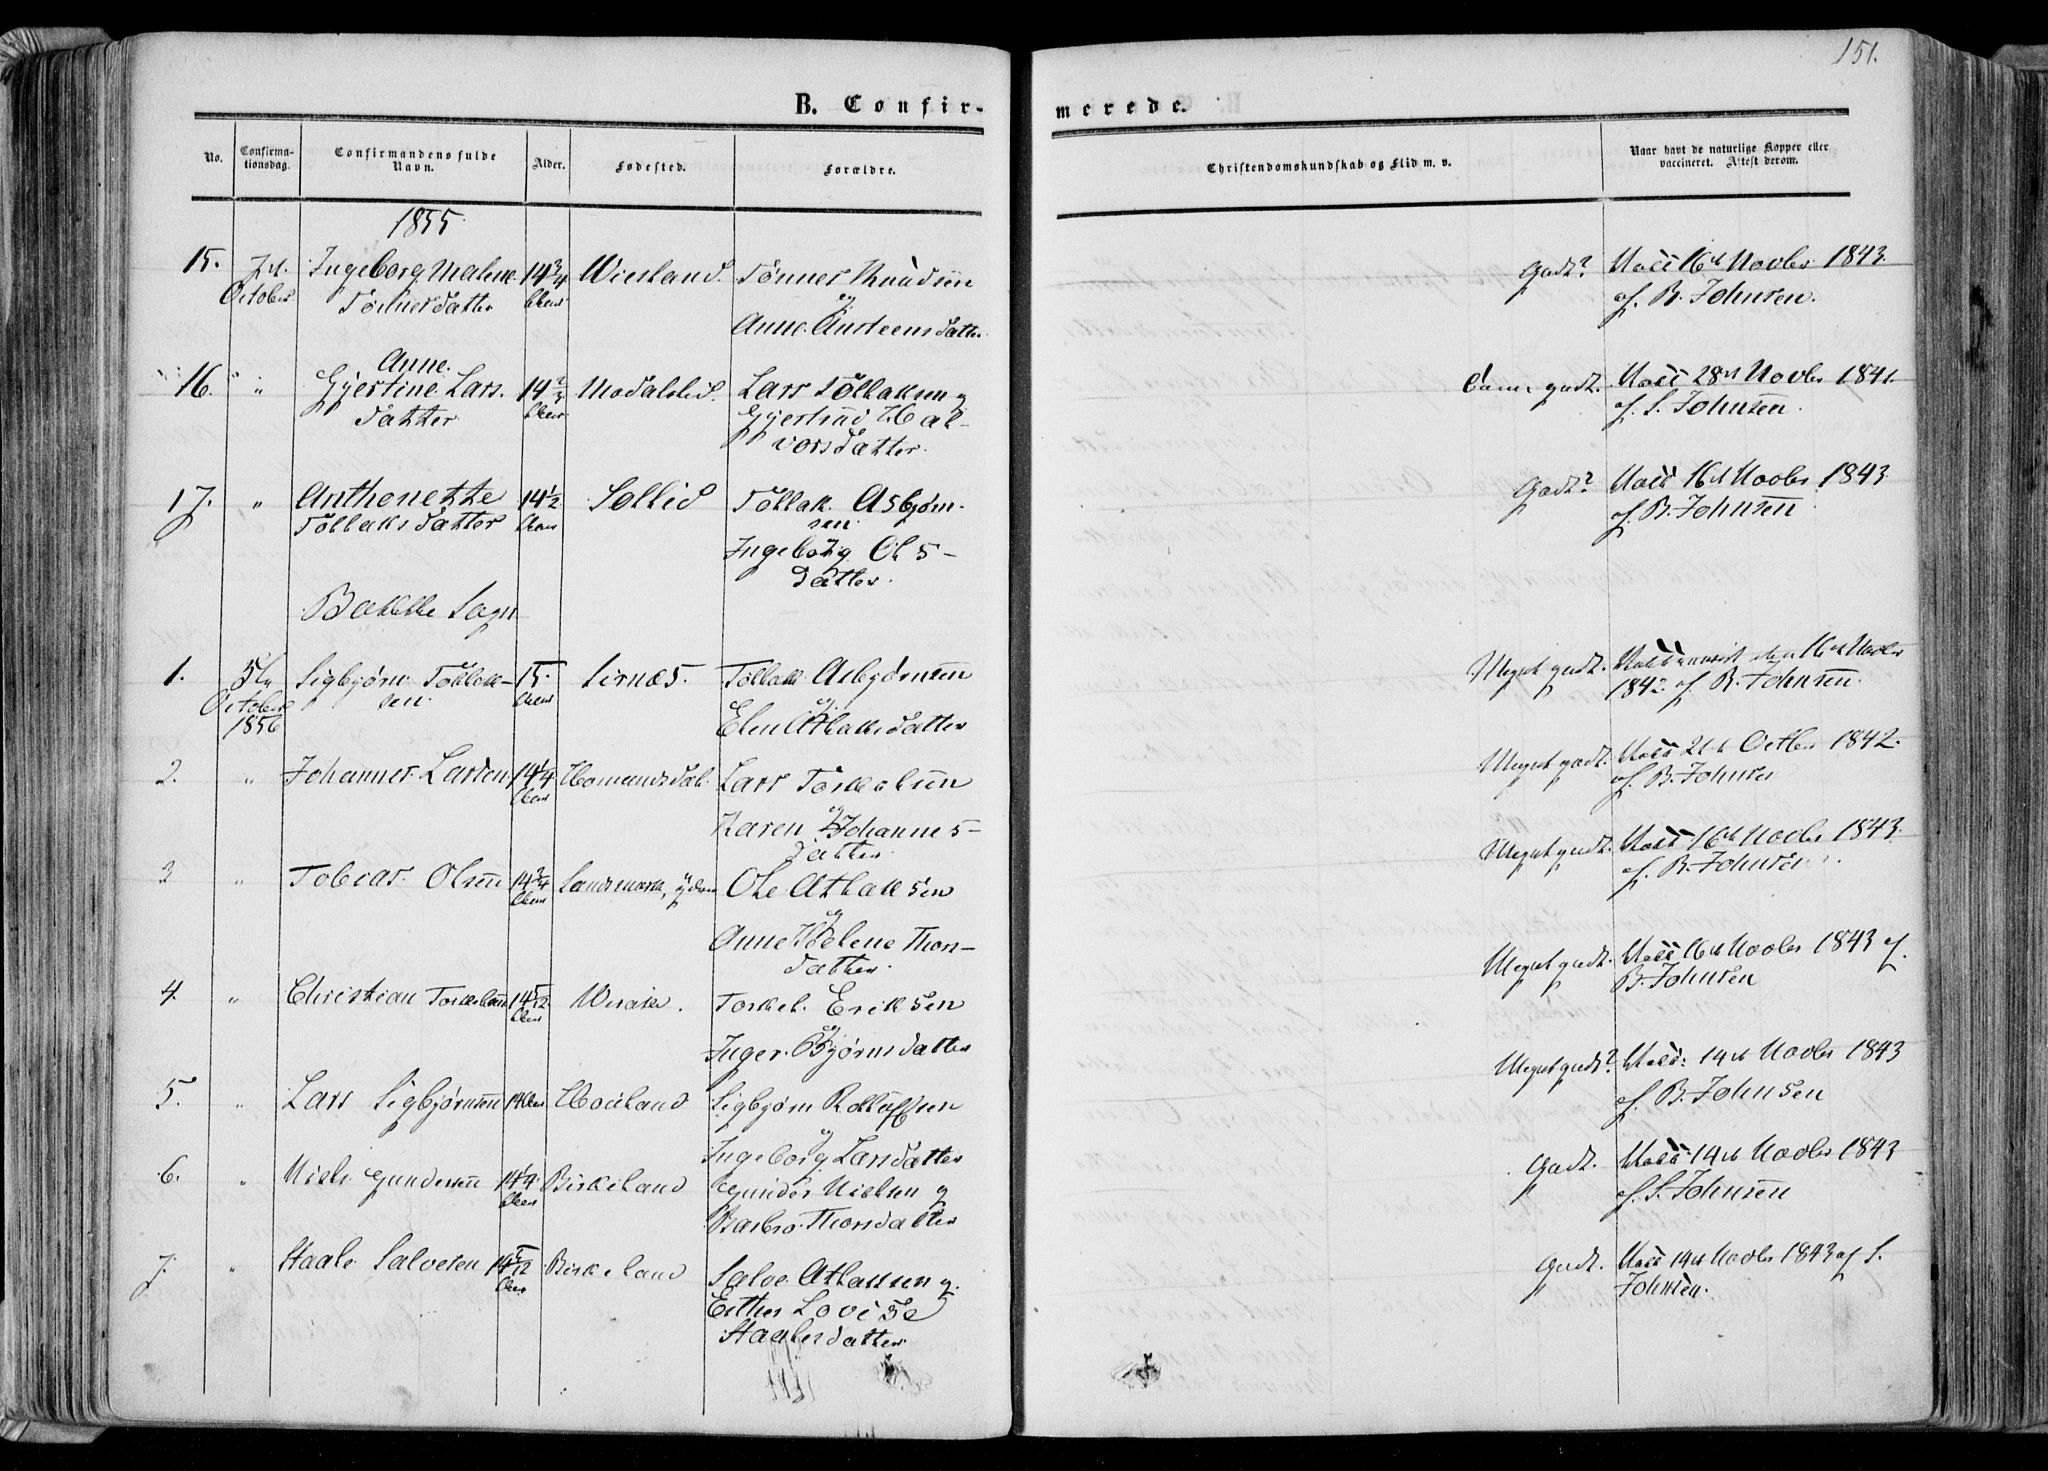 151.
B. Confirmerede.
No. Confirmationsdag. Confirmandens fulde Navn. Alder. Fødested. Forældre. Christendomskundskab og Flid m. v. Naar havt de naturlige Kopper eller vaccineret. Attest derom.
1855
15. 7de Ingeborg Malene 14 3/4 Tønnes Knudsen Godt? Vacc 16de Novbr 1843
October Tønnesdatter Aar og af B. Johnsen.
Anne Andreasdatter
Anne
16. " Gjertine Lars- 14 2/3 Modalslid Lars Tollaksen og godt. Vacc 28de Novbr 1841.
datter Aar Gjertrud Hal- af S. Johnsen
vorsdatter
17. " Anthonette 14 1/2 Sollid Tollak Asbjørn- Godt? Vacc 16de Novbr 1843
Tollaksdatter Aar sen af B. Johnsen
Ingeborg Ols-
datter
Bakke Sogn
1. 5te Sigbjørn Tollak- 15 Sirnæs Tollak Asbjørnsen Meget godt. 16de Novbr
October sen Aar og af B. Johnsen.
1856 Elen Atlaksdatter
2. " Johannes Larsen 14 1/4 Homandsdal Lars Torkelsen Meget godt. Vacc 21de Octbr 1842.
Aar og af B. Johnsen
Karen Johannes-
datter
3 " Tobias Olsen 14 3/4 Ole Atlaksen Meget godt. Vacc 16de Novbr 1843.
Aar og af B. Johnsen
Anne Helene Thors-
datter
4. " Christian Torkelsen 14 5/12 Torkel Eriksen Meget godt. Vacc 16de Novbr 1843 af
Aar og B. Johnsen
Inger Bjørnsdatter
5. " Lars Sigbjørnsen 14 Aar Hovland Sigbjørn Rolluffsen Meget godt? Vacc: 14de Novbr 1843
og af B. Johnsen
Ingeborg Larsdatter
6. " Niels Gundersen 14 1/4 Birkeland Gunder Nielsen og Godt. Vacc: 14de Novbr 1843
Aar Barbro Thorsdatter af S. Johnsen
7. " Staale Salvesen Birkeland Salve Atlaksen og Godt. Vacc 14de Novbr 1843 af S.
Aar Esther Lovise Johnsen.
Staalesdatter